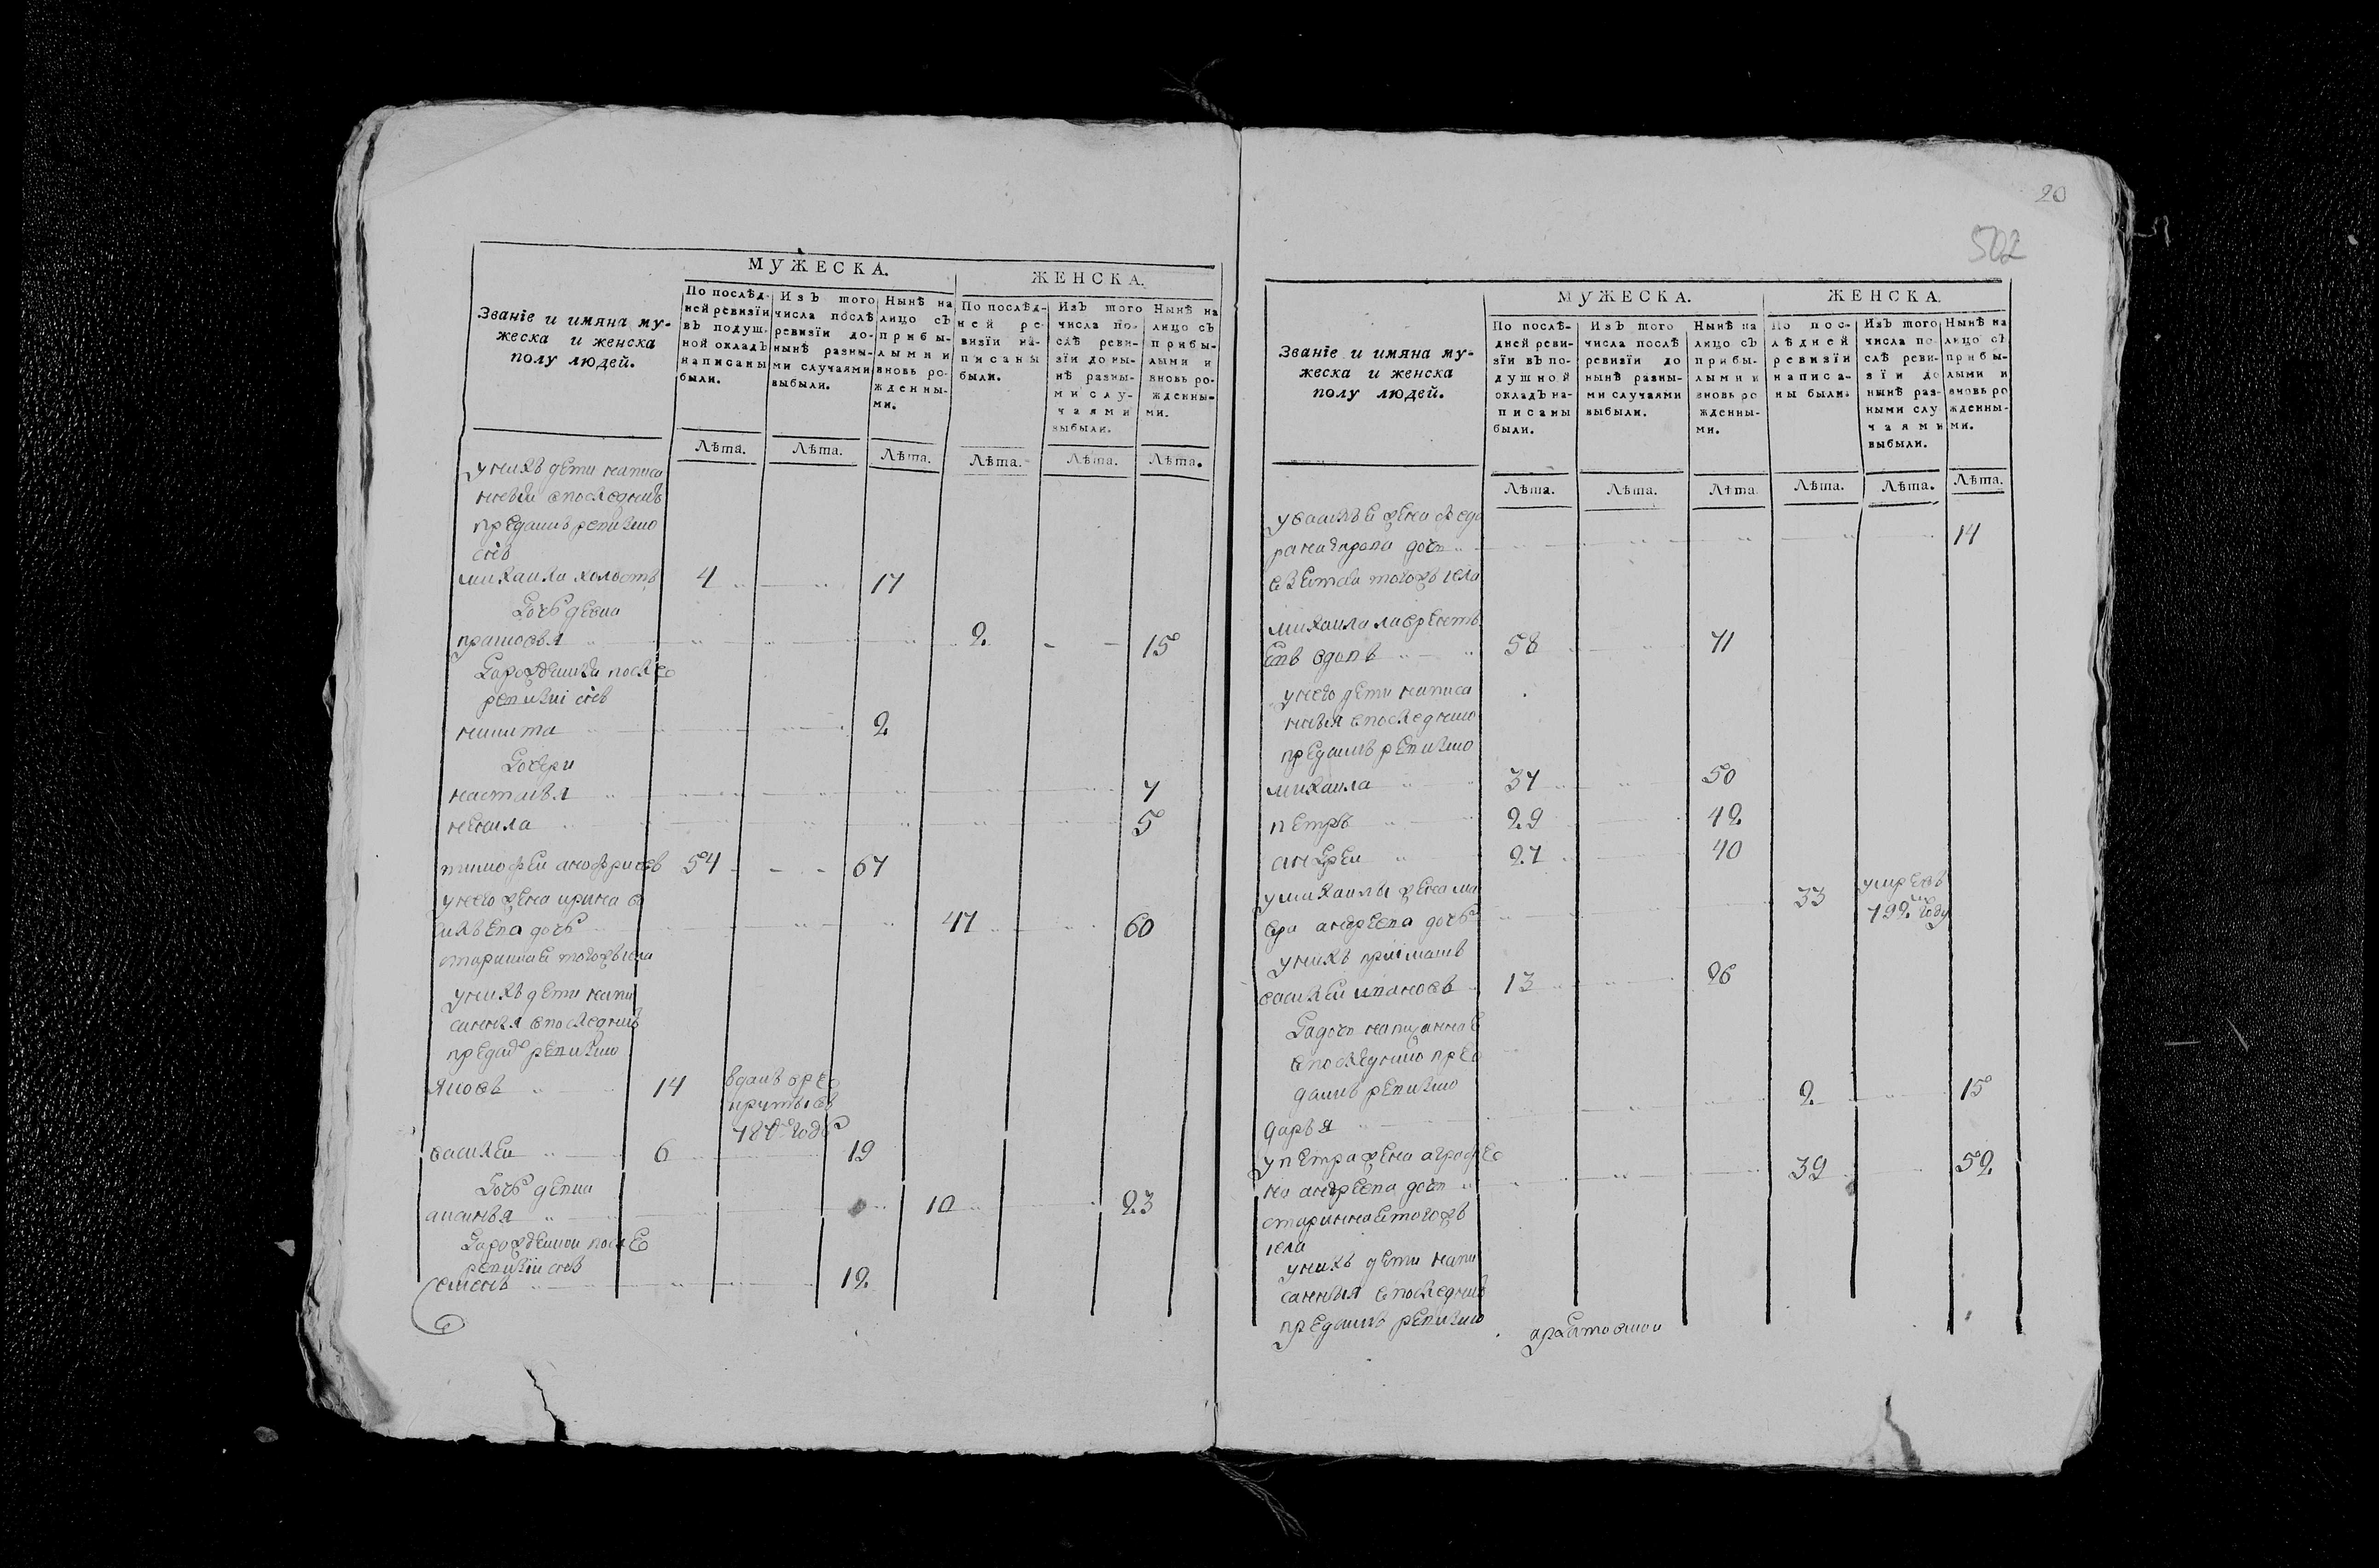 МУЖЕСКА.
ЖЕНСКА.
Званіе и имяна му-
жеска и женска
полу людей.
По послѣд-
ней ревизїи
въ подуш-
ной окладъ
написаны
были.
Изъ того
числа послѣ
ревизїи до-
нынѣ разны-
ми случаями
выбыли.
Нынѣ на
лицо съ
прибы-
лыми и
вновь ро-
жденны-
ми.
По послѣд-
ней ре-
визїи на-
писаны
были.
Изъ того
числа по-
слѣ реви-
зїи до ны-
нѣ разны-
ми слу-
чаями
выбыли.
Нынѣ на
лицо съ
прибы-
лыми и
вновь ро-
жденны-
ми.
Лѣта. Лѣта. Лѣта. Лѣта. Лѣта. Лѣта.
у нихъ дети написа
нные в последнюю
предсимъ ревизию
снъ
михаила холостъ 4 17
Дочь девка
прасковья 2 15
Рарожденныи после
ревизиі снъ
никита 2
Дочери
настасья 7
ненила 5
тимофеи анофриевъ 54 67
у него жена ирина ва
сильева дочь 47 60
старинная тогожъ села
у нихъ дети напи
санныя в последнюю
предъ ревизию
яковъ 14 вданъ врек
рутысвъ
787 годѣ
василеи 6 19
Дочь девка
аксинья 10 23
Рарожденнои после
ревизиі снъ
семенъ 12
20
502
МУЖЕСКА.
ЖЕНСКА.
Званіе и имяна му-
жеска и женска
полу людей.
По послѣ-
дней реви-
зїи въ по-
душной
окладъ на-
писаны
были.
Изъ того
числа послѣ
ревизїи до
нынѣ разны-
ми случаями
выбыли.
Нынѣ на
лицо съ
прибы-
лыми и
вновь ро
жденны-
ми.
По пос-
лѣдней
ревизїи
написа-
ны были.
Изъ того
числа по-
слѣ реви-
зїи до
нынѣ раз-
ными слу
чаями
выбыли.
Нынѣ на
лицо съ
прибы-
лыми и
вновь ро
жденны-
ми.
Лѣта. Лѣта. Лѣта. Лѣта. Лѣта. Лѣта.
у василья жена федо
ра дочь 14
взетая тогожъ села
михаила лаврентъ
евъ вдовъ 58 71
у него дети написа
нныя в последнюю
предсимъ ревизию
михаила 37 50
петръ 29 42
андреи 27 40
у михаилы жена ма
вра андреева дочь 33 умре въ
792 году
у нихъ приімашъ
василеи ивановъ 13 26
Радочь написанная
в последнюю пре
дсимъ ревизию
дарья 2 15
у петра жена аграфе
на андреева дочь 39 52
стариннаетогожъ
села
у нихъ дети напи
санныя в последнюю
предсимъ ревизию